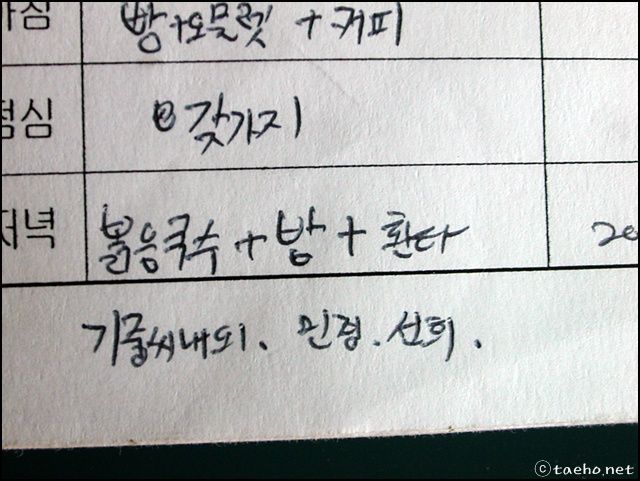 빵+오믈렛 +커피
점심 갖가지
저녁 볶음국수 + 밥 + 환타
기굼씨내외. 민경. 선희.
ⓒtaeho.net